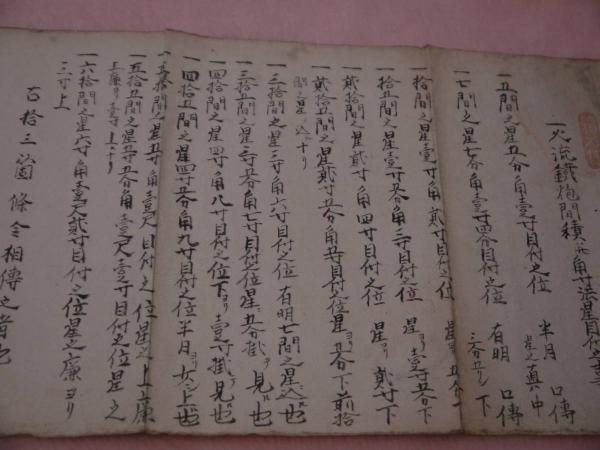 一火流鉄炮間積并角寸法星目付之事
一五間之星五分角壹寸目付之位 半月 口傳
星之真中
一七間之星七分角壹寸四分目付之位 有明 口傳
三分五リン下
一拾間之星壹寸角貳寸目付之位 星ヨリ五分下
一拾五間之星壹寸五分角三寸目付之位 星ヨリ壹寸五分下
一貳拾間之星貳寸角四寸目付之位 星ヨリ貳寸下
一貳拾五間之星貳寸五分角五寸目付之位星ヨリ五分下前拾
間之星込十リ
一三拾間之星三寸角六寸目付之位 有明七間之星込也
一三拾五間之星三寸五分角七寸目付之位星ニ五分掛テ見ル也
一四拾間之星四寸角八寸目付之位下ヨリ壹寸掛テ見ル也
一四拾五間之星四寸五分角九寸目付之位半月ヨリ上也
一五拾間之星五寸角壹尺目付之位星之上廉
一五拾五間之星五寸五分角壹尺壹寸目付之位星之
上廉ヨリ壹寸上十リ
一六拾間之星六寸角壹尺貳寸目付之位星之廉ヨリ
三寸上
右拾三箇條令相傳之者也